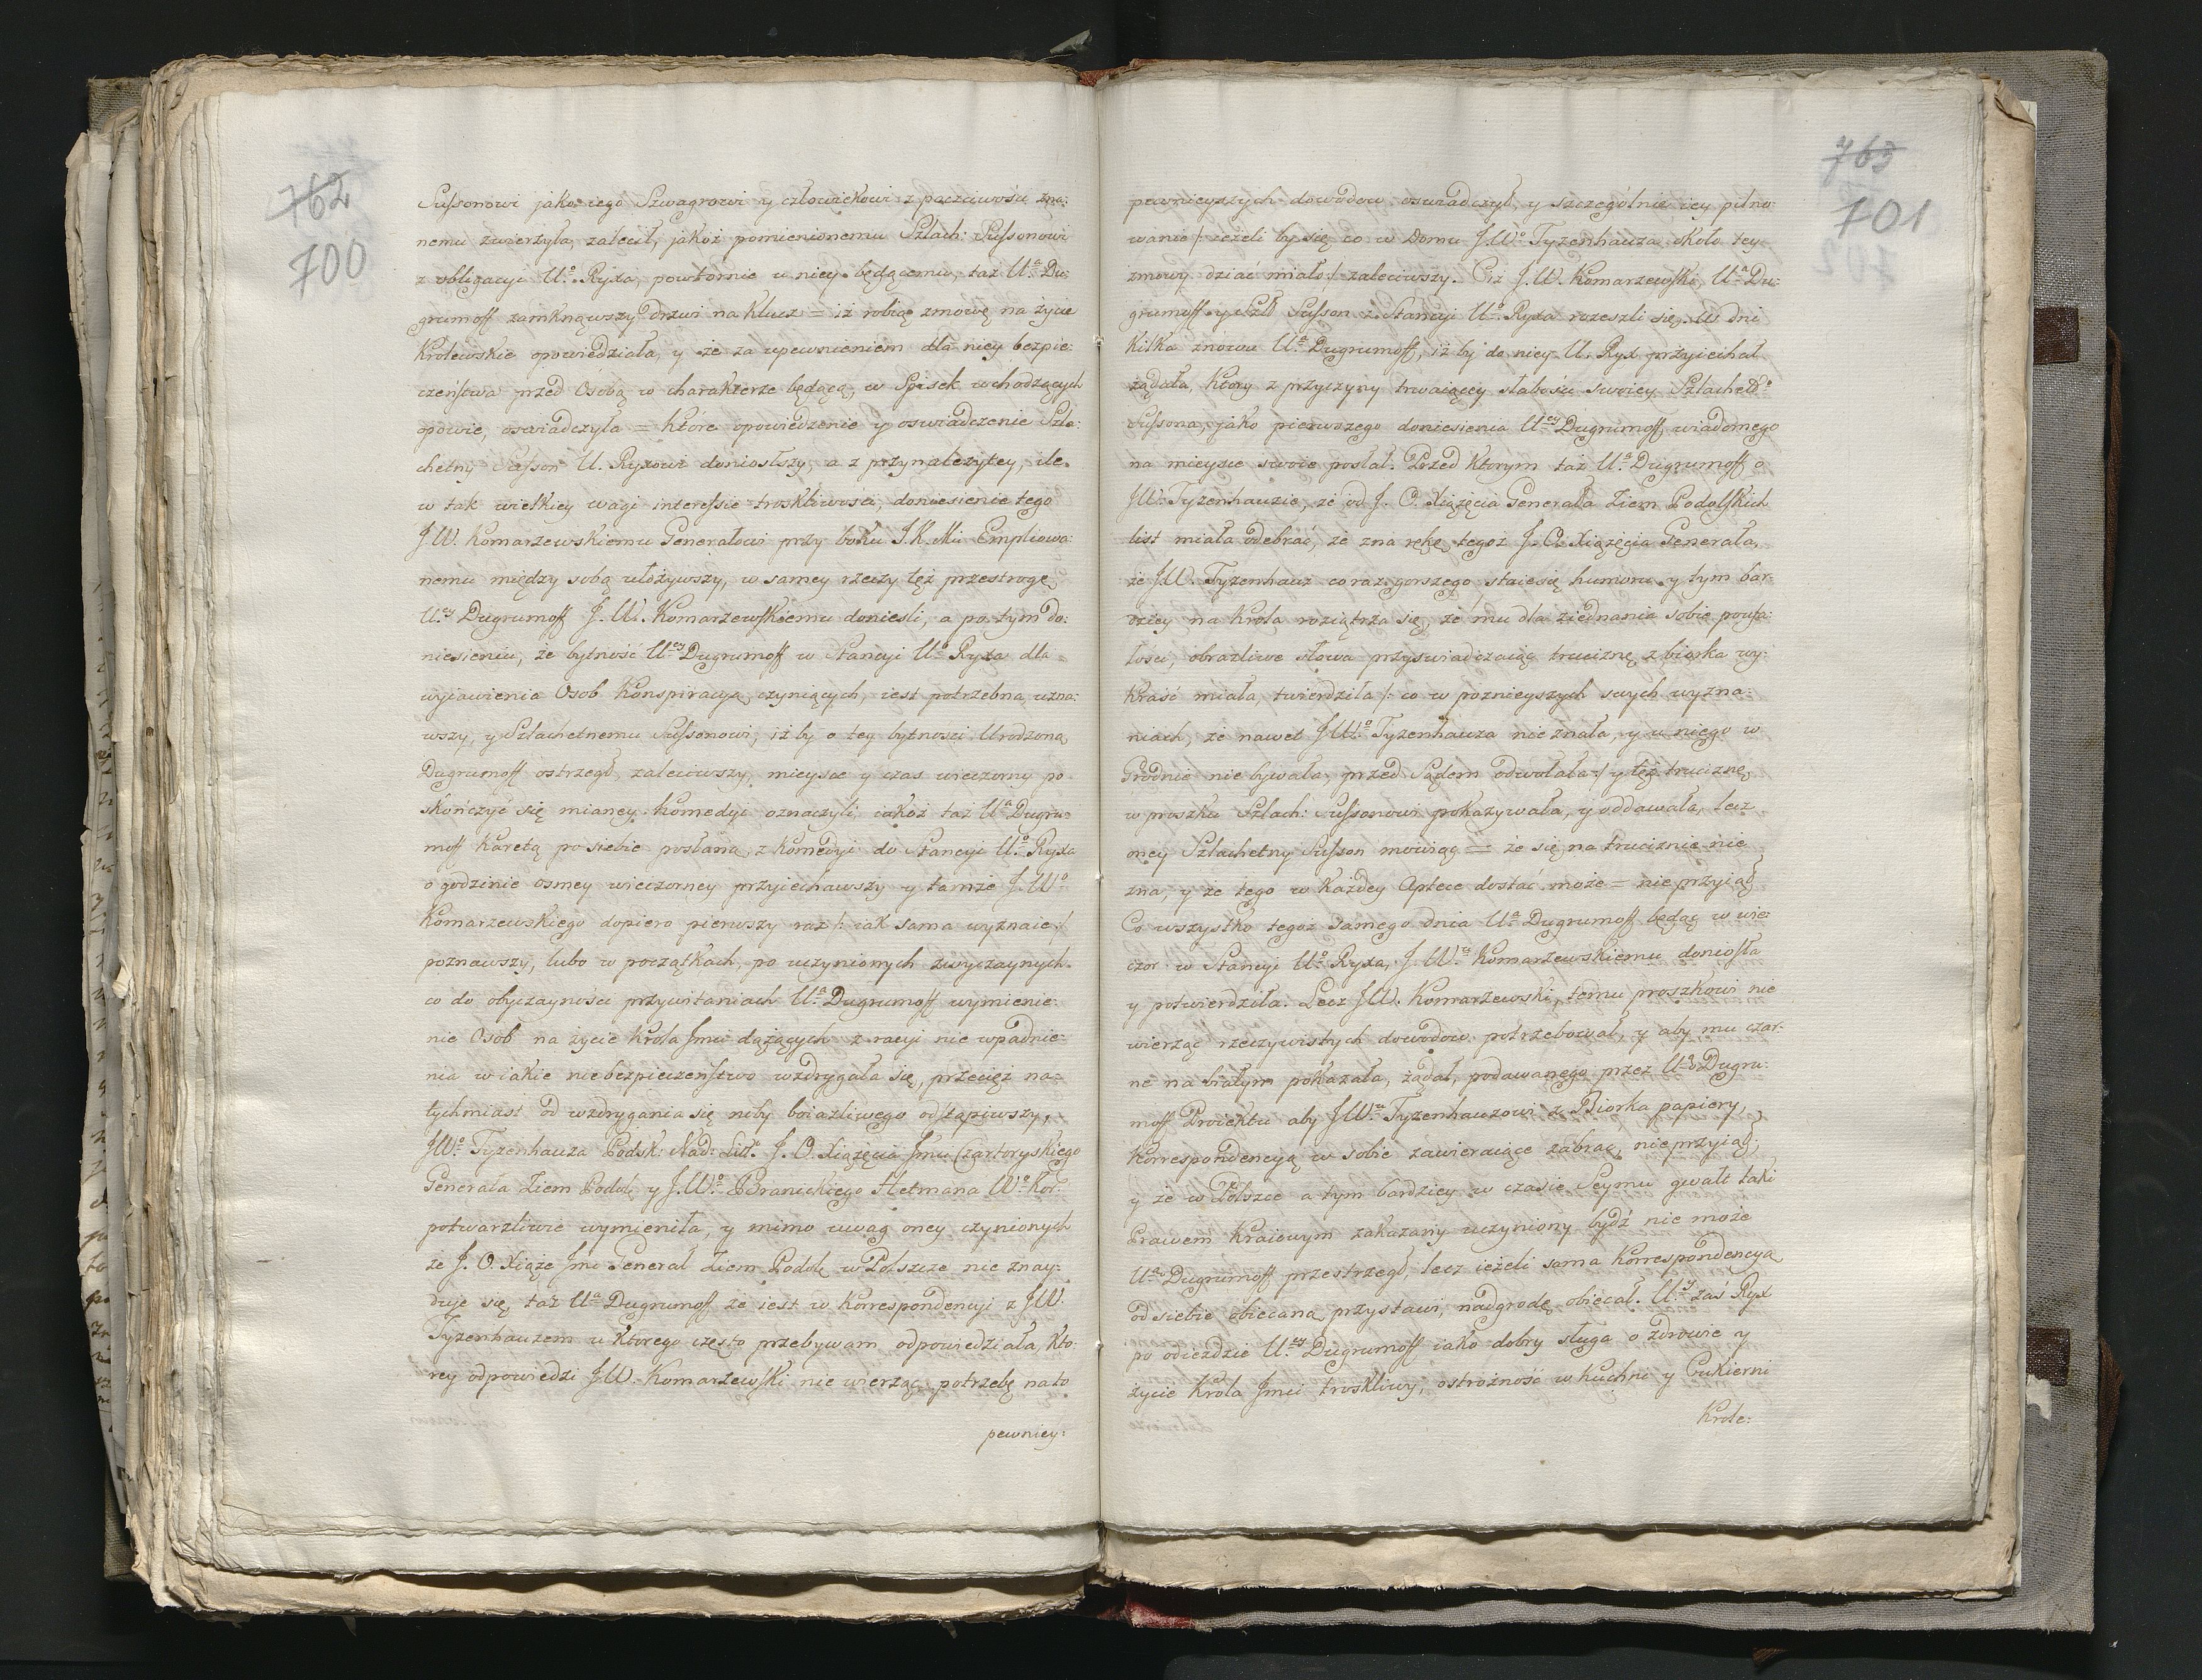 762
700
Sussonowi jako iego Szwagrowi y człowiekowi z poczciwości zna:
nemu zwierzyła, zalecił, jakoż pomienionemu Szlach: Sussonowi
z obligacyi Uo. Ryxa, powtornie u niey będącemu, taż Ua. Du:
grumoff zamknąwszy drzwi na klucz = iż robią zmowę na życie
Krolewskie opowiedziała, y że za upewnieniem dla niey bezpie:
czeństwa przed Osobą w charakterze będącą, w Spisek wchodzących
opowie, oswiadczyła = Które opowiedzenie y oswiadczenie Szla:
chetny Susson U. Ryxowi doniosłszy, a z przynalezytey, ile
w tak wielkiey wagi interessie troskliwosci, doniesienie tego
J W. Komarzewskiemu Generałowi przy boku J. K. Mci Empliowa:
nemu między sobą ułożywszy, w samey rzeczy tęż przestrogę
Uey Dugrumoff J. W. Komarzewskiemu doniesli, a po tym do:
niesieniu, że bytność Uey Dugrumoff w Stancyi Uo Ryxa dla
wyiawienia Osob Konspiracyą czyniących, iest potrzebna, uzna:
wszy, y Szlachetnemu Sussonowi, iż by o tey bytnosci Urodzoną
Dugrumoff ostrzegł, zaleciwszy, mieysce y czas wieczorny po
skończyć się mianey Komedyi oznaczyli, iakoż taż Ua Dugru:
moff Karetą po siebie posłaną, z Komedyi do Stancyi Uo. Ryxa
o godzinie osmey wieczorney przyjechawszy y tamże J. Wo
Komarzewskiego dopiero pierwszy raz /: iak sama wyznaie :/
poznawszy, lubo w początkach, po uczynionych zwyczaynych
co do obyczayności przywitaniach Ua Dugrumoff wymienie:
nie Osob na życie Krola Jmci dążących z racyi nie wpadnie:
nia w iakie niebezpieczeństwo wzdrygała się, przecięż na:
tychmiast od wzdrygania się niby boiazliwego odstąpiwszy,
JWo. Tyzenhauza Podsk: Nad: Lit. J. O. Xiążęcia Jmci Czartoryskiego
Generała Ziem Podol: y J. Wo. Branickiego Hetmana Wo Kor:
potwarzliwie wymieniła, y mimo uwag oney czynionych
że J. O. Xiąże Jmć Generał Ziem Podol: w Polszcze nie znay:
duje się, taż Ua Dugrumoff że iest w Korrespondencyi z JW.
Tyzenhauzem u Ktorego często przebywam odpowiedziała, Kto:
rey odpowiedzi JW. Komarzewski nie wierząc, potrzebę na to
pewniey:
763
701
pewnieyszych dowodow oswiadczył, y szczególnie iey pilno:
wanie /: ieżeli by się co w Domu J. Wo. Tyzenhauza około tey
zmowy dziać miało :/ zaleciwszy. Ciż J. W. Komarzewski, Ua Du:
grumoff y Szl Susson z Stancyi Uo. Ryxa rozeszli się. W dni
Kilka znowu Ua Dugrumoff, iż by do niey U. Ryx przyiechał
żądała, Ktory z przyczyny trwaiącey słabości swoiey Szlachetgo
Sussona, jako pierwszego doniesienia Uey Dugrumoff wiadomego
na mieysce swoie posłał. Przed Ktorym taż Ua Dugrumoff o
JW. Tyzenhauzie, że od J. O. Xiążęcia Generała Ziem Podolskich
list miała odebrać, że zna rękę tegoż J. O. Xiążęcia Generała,
że J.W. Tyzenhauz coraz gorszego staie się humoru y tym bar:
dziey na Krola roziątrza się, że mu dla ziednania sobie poufa:
łosci, obrazliwe słowa przyswiadczaiąc truciznę z biorka wy:
kraść miała, twierdziła /: co w poznieyszych swych wyzna:
niach, że nawet J Wo Tyzenhauza nie znała, y u niego w
Grodnie nie bywała, przed Sądem odwołała :/ y tęż truciznę
w proszku Szlach: Sussonowi pokazywała, y oddawała, lecz
oney Szlachetny Susson mowiąc = że się na truciznie nie
zna, y że tego w Każdey Aptece dostać może = nie przyiął.
Co wszystko tegoż samego dnia Ua Dugrumoff będąc w wie:
czor w Stancyi Uo Ryxa, J. Wu Komarzewskiemu doniosła
y potwierdziła. Lecz J.W. Komarzewski, temu proszkowi nie
wierząc rzeczywistych dowodow potrzebował, y aby mu czar:
ne na białym pokazała, żądał, podawanego przez Uą Dugru:
moff Proiektu aby JWu Tyzenhauzowi z Biorka papiery,
Korrespondencyą w sobie zawieraiące zabrać, nie przyiął;
y że w Polszce a tym bardziey w czasie Seymu gwałt taki
Prawem Kraiowym zakazany uczyniony bydź nie może
Uą Dugrumoff przestrzegł, lecz ieżeli sama Korrespondencyą
od siebie obiecaną przystawi, nadgrodę obiecał. U.y zaś Ryx
po odieżdzie Uey Dugrumoff iako dobry sługa o zdrowie y
życie Krola Jmci troskliwy, ostrożność w Kuchni y Cukierni
Krole: